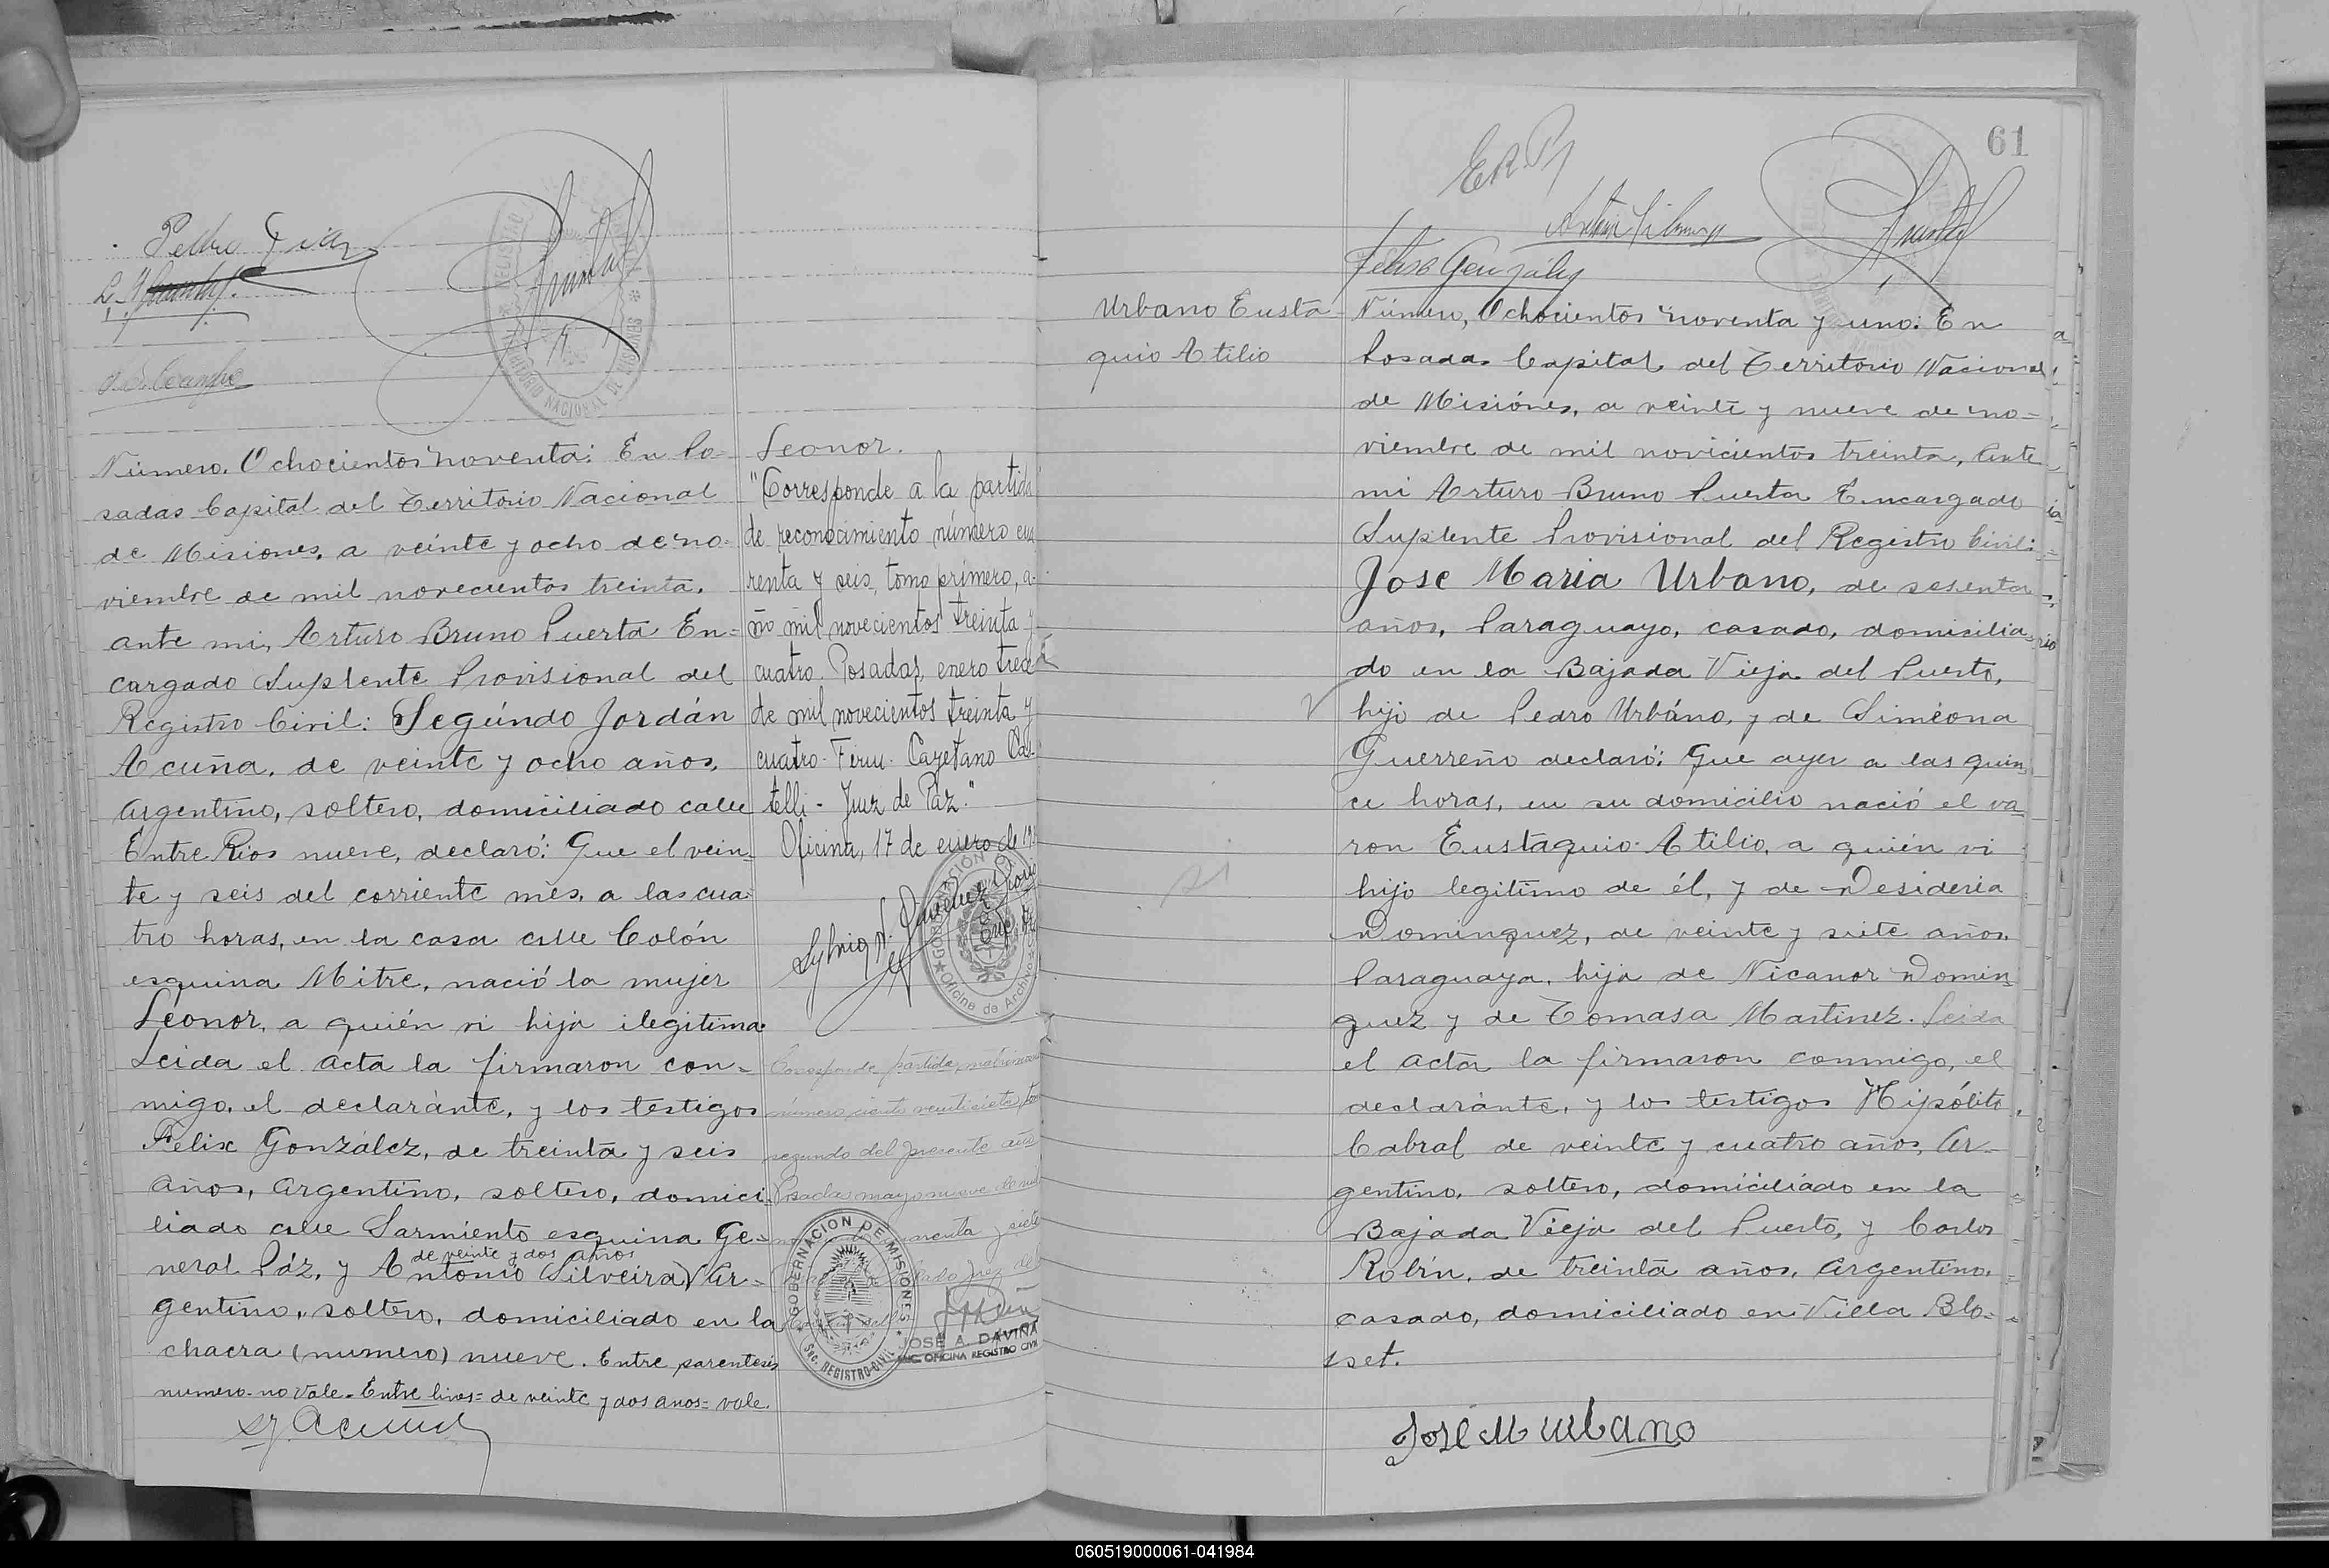 Pedro Diaz
Número. Ochocientos noventa: En Po-
sadas Capital del Territorio Nacional
de Misiones, a veinte y ocho de no-
viembre de mil novecientos treinta.
ante mi, Arturo Bruno Puerta En=
cargado Suplente Provisional del
Registro Civil: Segúndo Jordán
Acuña, de veinte y ocho años,
argentino, soltero, domiciliado calle
Entre Rios nueve, declaró: Que el vein-
te y seis del corriente mes, a las cua-
tro horas, en la casa calle Colón
esquina Mitre, nació la mujer
Leonor, a quién vi hija ilegitima.
Leida el acta la firmaron con-
migo, el declaránte, y los testigos
Felix González, de treinta y seis
años, argentino, soltero, domici-
liado calle Sarmiento esquina Ge-
de veinte y dos años
neral Páz, y Antonio Silveira, Ar-
gentino, soltero, domiciliado en la
chacra (numero) nueve. Entre parentesis
numero-no vale-Entre lineas= de veinte y dos años= vale.
Leonor.
"Corresponde a la partida
de reconocimiento número cua
renta y seis, tomo primero, a-
ño mil novecientos treinta y
cuatro. Posadas, enero trece
de mil novecientos treinta y
cuatro- Firm. Cayetano Cas-
telli- Juez de Paz."
Oficina, 17 de enero de 19
Corresponde partida matrimonio
número ciento veintisiete
segundo del presente año
Posadas mayo nueve de mil
GOBERNACION DE MISIONES
Sec. REGISTRO CIVIL
Oficina de Archivo
JOSÉ A. DAVIÑA
ENC. OFICINA REGISTRO CIVIL
61
Felix González
Urbano Eusta-
quio Atilio
Número, Ochocientos noventa y uno: En
Posadas Capital del Territorio Nacional
de Misiónes, a veinte y nueve de no=
viembre de mil novicientos treinta, ante
mi Arturo Bruno Puerta Encargado
Suplente Provisional del Registro Civil:
Jose Maria Urbano, de sesenta
años, Paraguayo, casado, domicilia-
do en la Bajada Vieja del Puerto,
hijo de Pedro Urbáno, y de Siméona
Guerreño declaró: Que ayer a las quin-
ce horas, en su domicilio nació el va-
ron Eustaquio Atilio, a quién vi
hijo legitimo de él, y de Desideria
Dominguez, de veinte y siete años,
Paraguaya, hija de Nicanor Domin-
guez y de Tomasa Martinez. Leida
el acta la firmaron conmigo, el
declaránte, y los testigos Hipólito
Cabral de veinte y cuatro años, Ar-
gentino, soltero, domiciliado en la
Bajada Vieja del Puerto, y Carlos
Robín, de treinta años, argentino,
casado, domiciliado en Villa Blo-
set.
José M Urbano
060519000061-041984